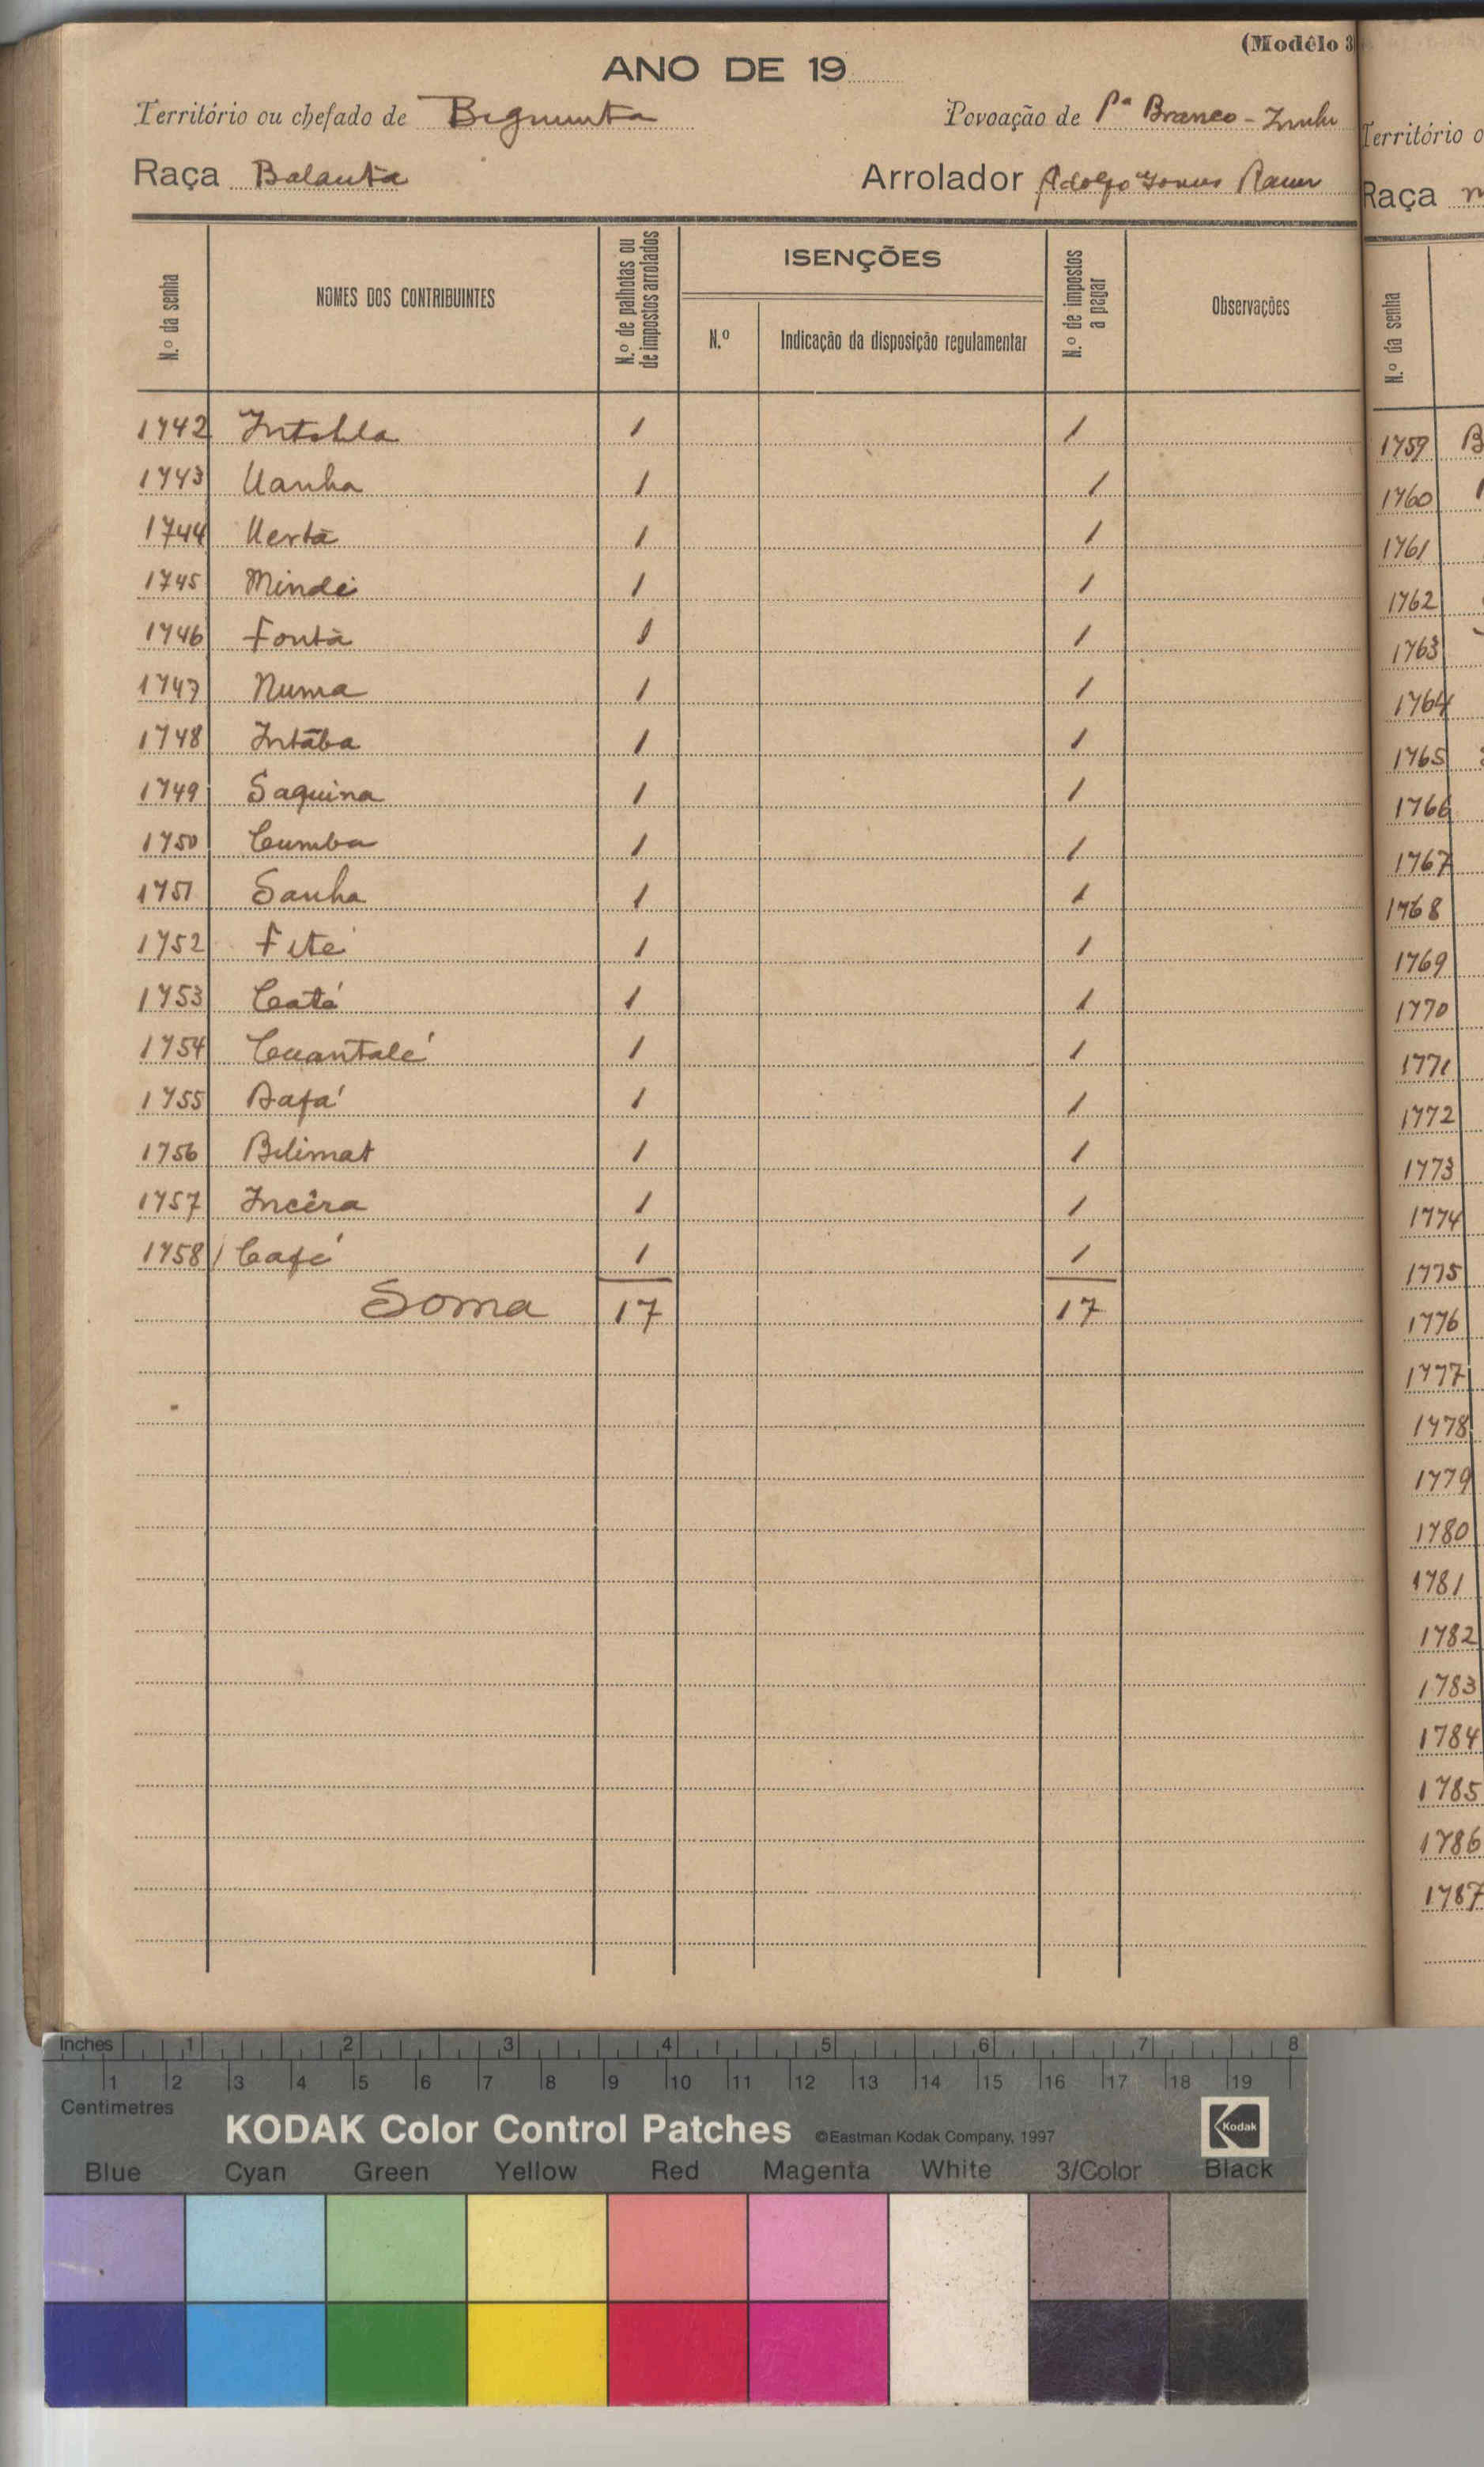 (Modêlo 3
ANO DE 19
Território ou chefado de
Povoação de Pª Branco -
Raça Balanta
Arrolador Adolfo
N.º da senha
NOMES DOS CONTRIBUINTES
N.º de palhotas ou de impostos arrolados
ISENÇÕES
N.º
Indicação da disposição regulamentar
N.º de impostos a pagar
Observações
1742 1 1
1743 Uanha 1 1
1744 Uertã 1 1
1745 Mindé 1 1
1746 Fontã 1 1
1747 Numa 1 1
1748 Intãba 1 1
1749 Saquina 1 1
1750 Cumba 1 1
1751 Sanha 1 1
1752 Fité 1 1
1753 Catá 1 1
1754 Cuantalé 1 1
1755 1 1
1756 Bilimat 1 1
1757 Incêra 1 1
1758 Café 1 1
Soma 17 17
Território o
Raça
N.º da senha
1759 B
1760
1761
1762
1763
1764
1765
1766
1767
1768
1769
1770
1771
1772
1773
1774
1775
1776
1777
1778
1779
1780
1781
1782
1783
1784
1785
1786
1787
Inches 1 2 3 4 5 6 7 8
1 2 3 4 5 6 7 8 9 10 11 12 13 14 15 16 17 18 19
Centimetres
KODAK Color Control Patches ©Eastman Kodak Company, 1997 Kodak
Blue Cyan Green Yellow Red Magenta White 3/Color Black